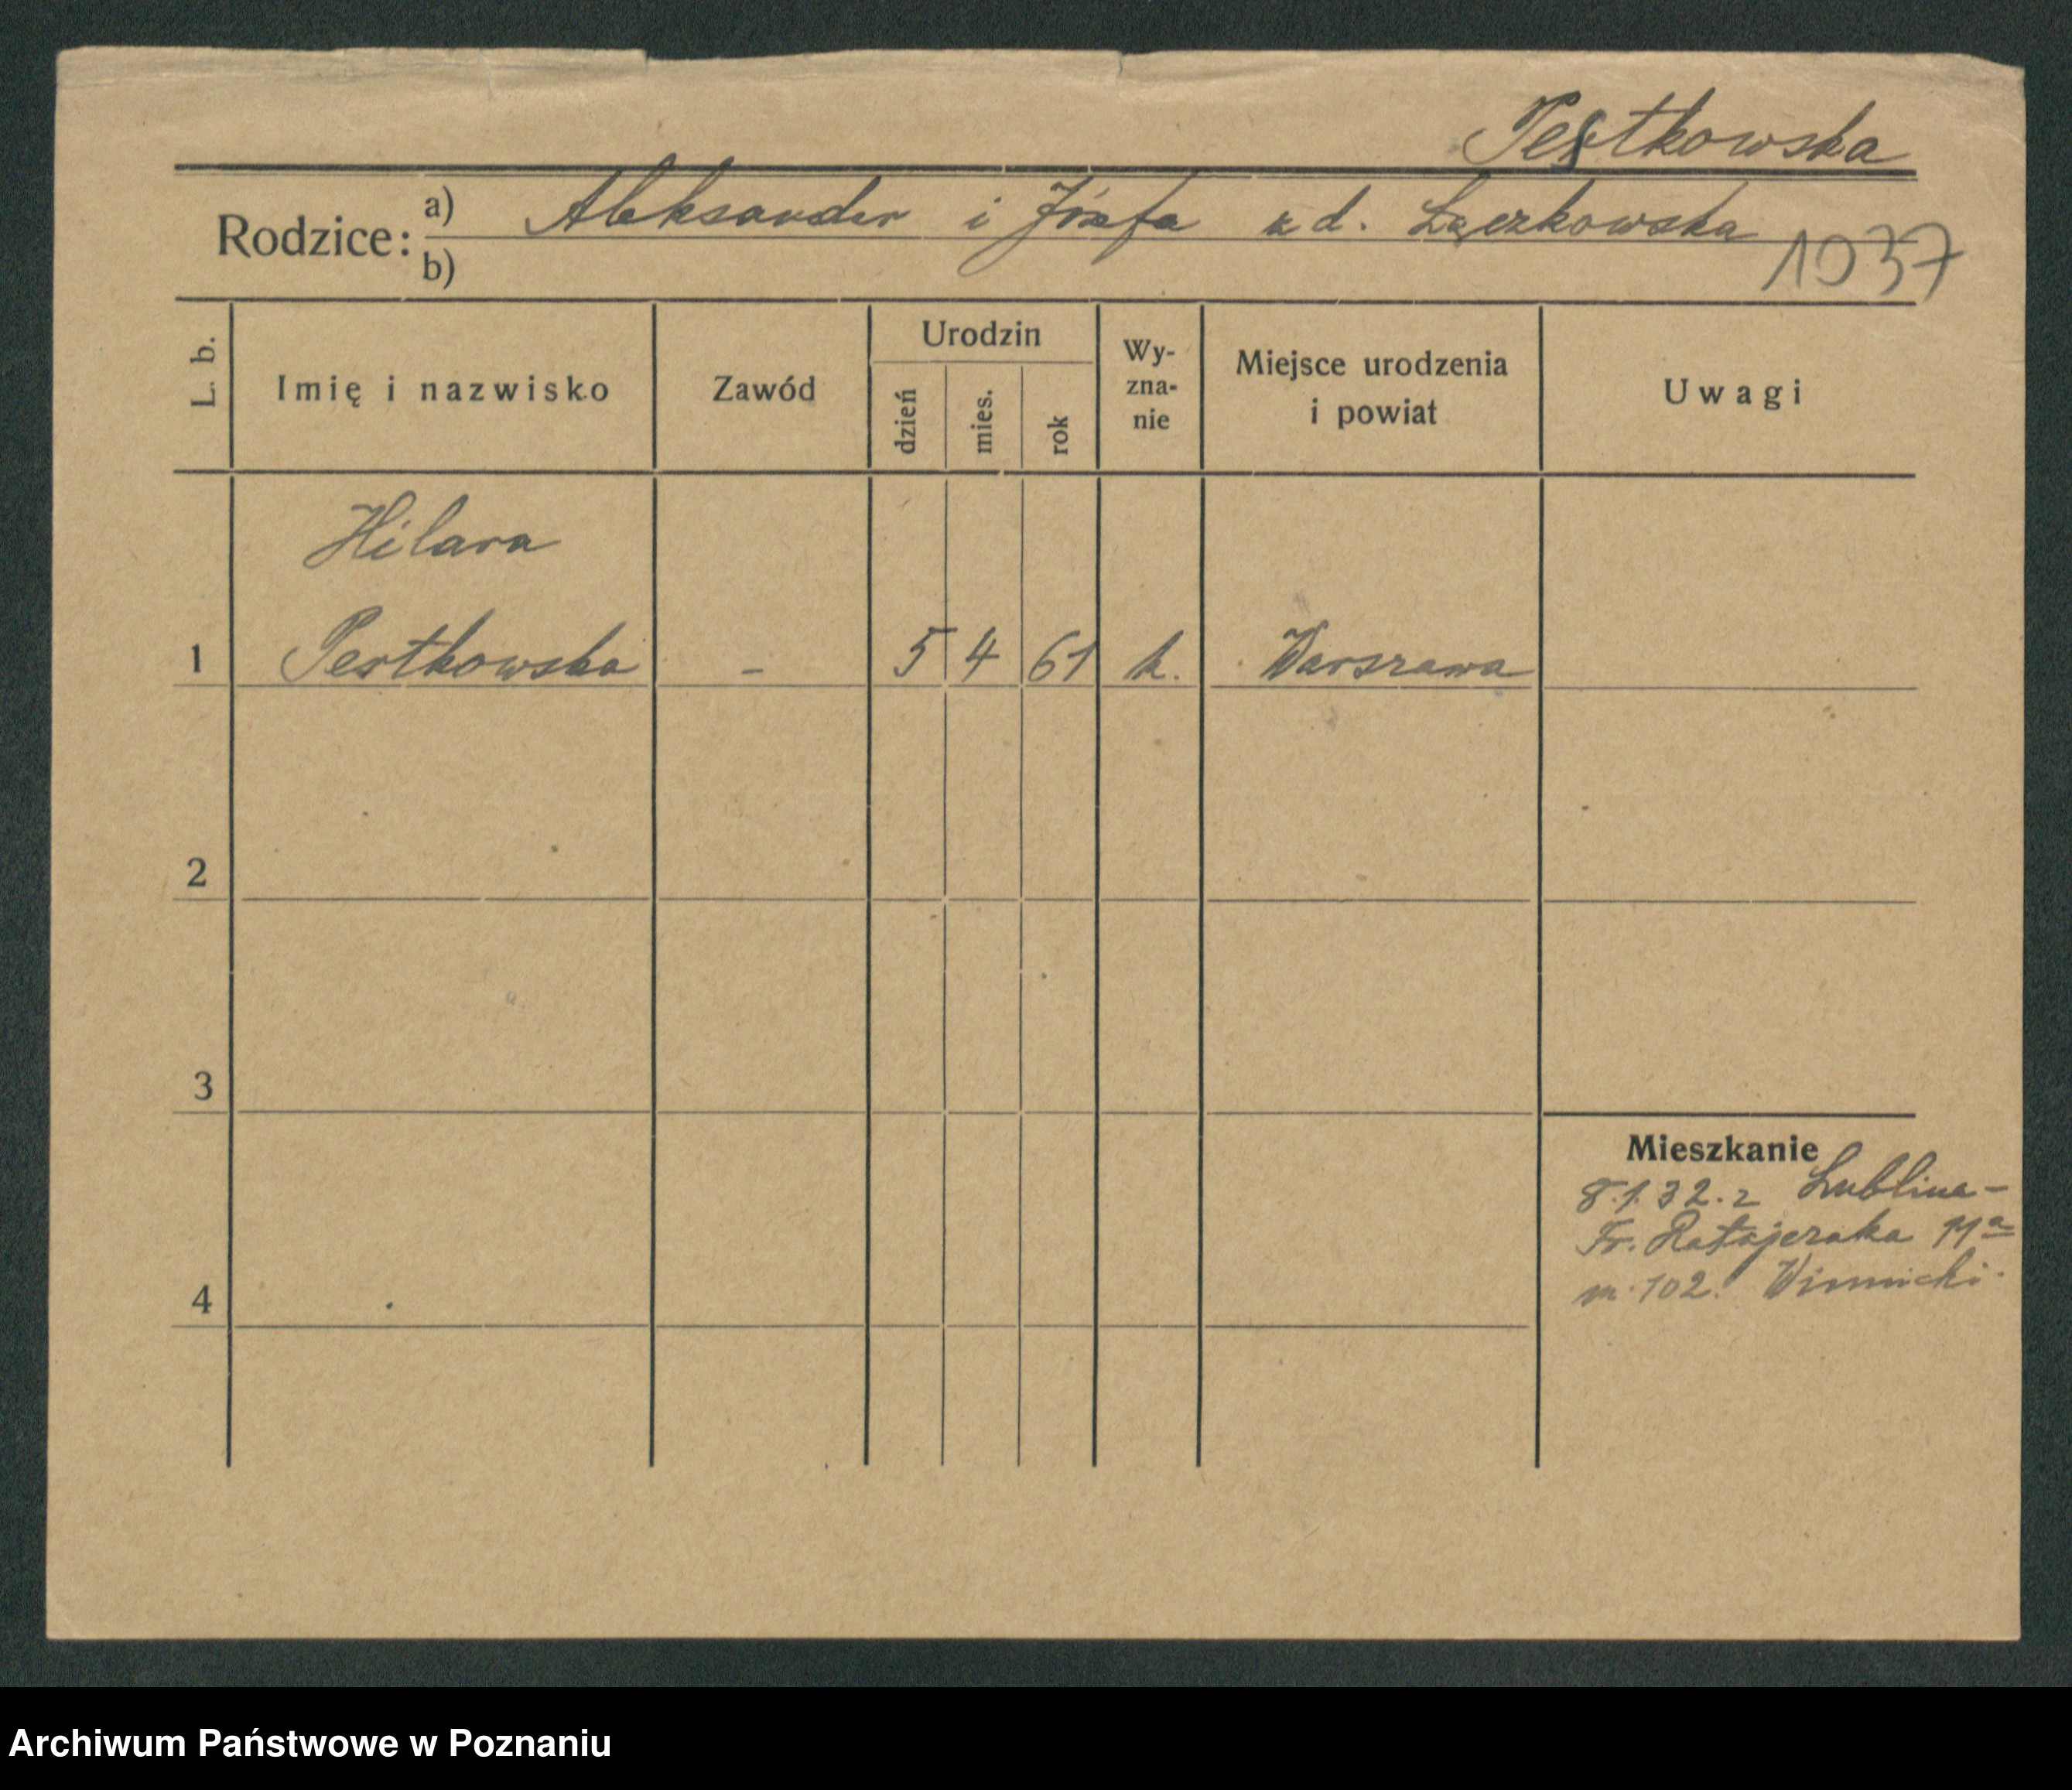 Pestkowska
Rodzice: a) Aleksander i Józefa z d. Łączkowska
b)
1937
L. b. Imię i nazwisko Zawód Urodzin dzień mies. rok Wy-zna-nie Miejsce urodzenia i powiat Uwagi
Hilara
1 Pestkowska - 5 4 61 k. Warszawa
2
3
Mieszkanie
8.1.32. z Lublina-
Fr. Ratajczaka 11a
4 m. 102. Winnicki.
Archiwum Państwowe w Poznaniu